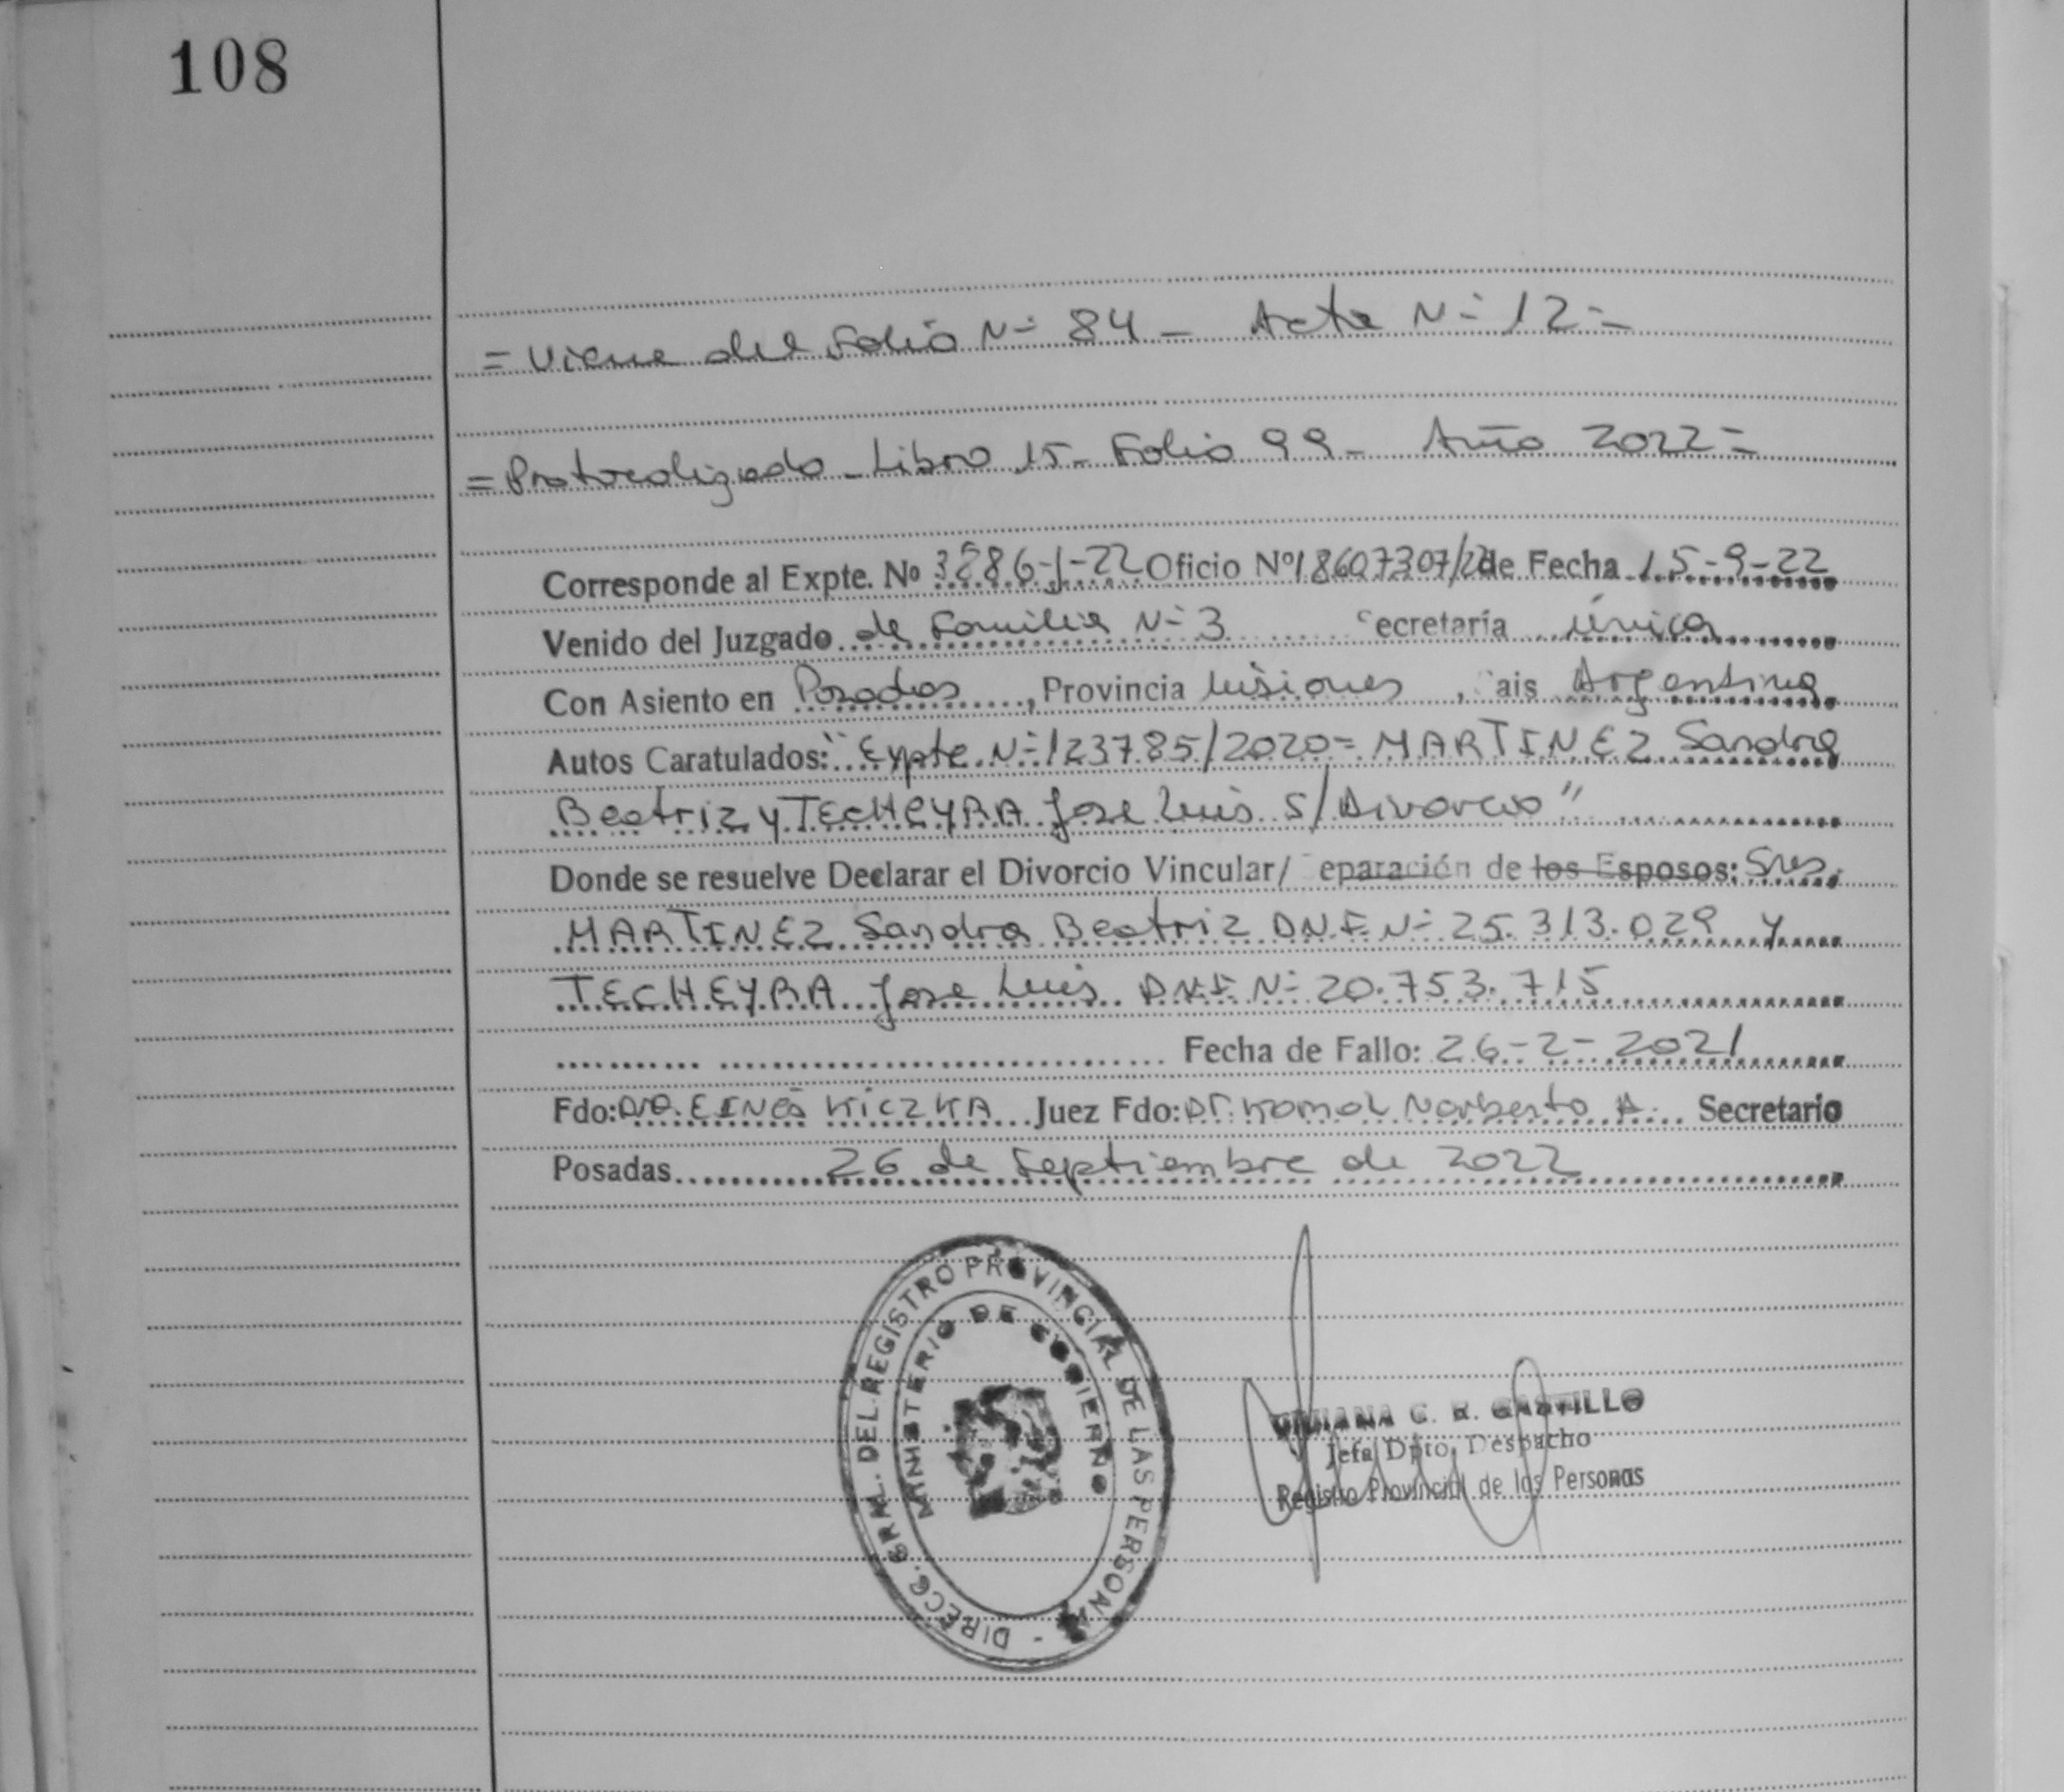 108
= Viene del Folio N- 84 - Acta N- 12 =
= Protocolizado - Libro 15 - Folio 99 - Año 2022 =
Corresponde al Expte. Nº 3286-J-22 Oficio Nº 18607307/22 de Fecha 15-9-22
Venido del Juzgado de Familia N- 3 ecretaría única
Con Asiento en Posadas, Provincia Misiones, ais Argentina
Autos Caratulados: "Expte. N- 123785/2020 = MARTINEZ Sandra
Beatriz y TECHEYRA Jose Luis S/Divorcio"
Donde se resuelve Declarar el Divorcio Vincular/ eparación de los Esposos: Sres.
MARTINEZ Sandra Beatriz DNI N- 25.313.029 y
TECHEYRA Jose Luis DNI N- 20.753.715
Fecha de Fallo: 26-2-2021
Fdo: KICZKA Juez Fdo: Dr. Norberto A. Secretario
Posadas 26 de Septiembre de 2022
DIRECC. GRAL. DEL REGISTRO PROVINCIAL DE LAS PERSONAS -
MINISTERIO DE GOBIERNO
VIVIANA C. R. CASTILLO
Jefa Dpto. Despacho
Registro Provincial de las Personas